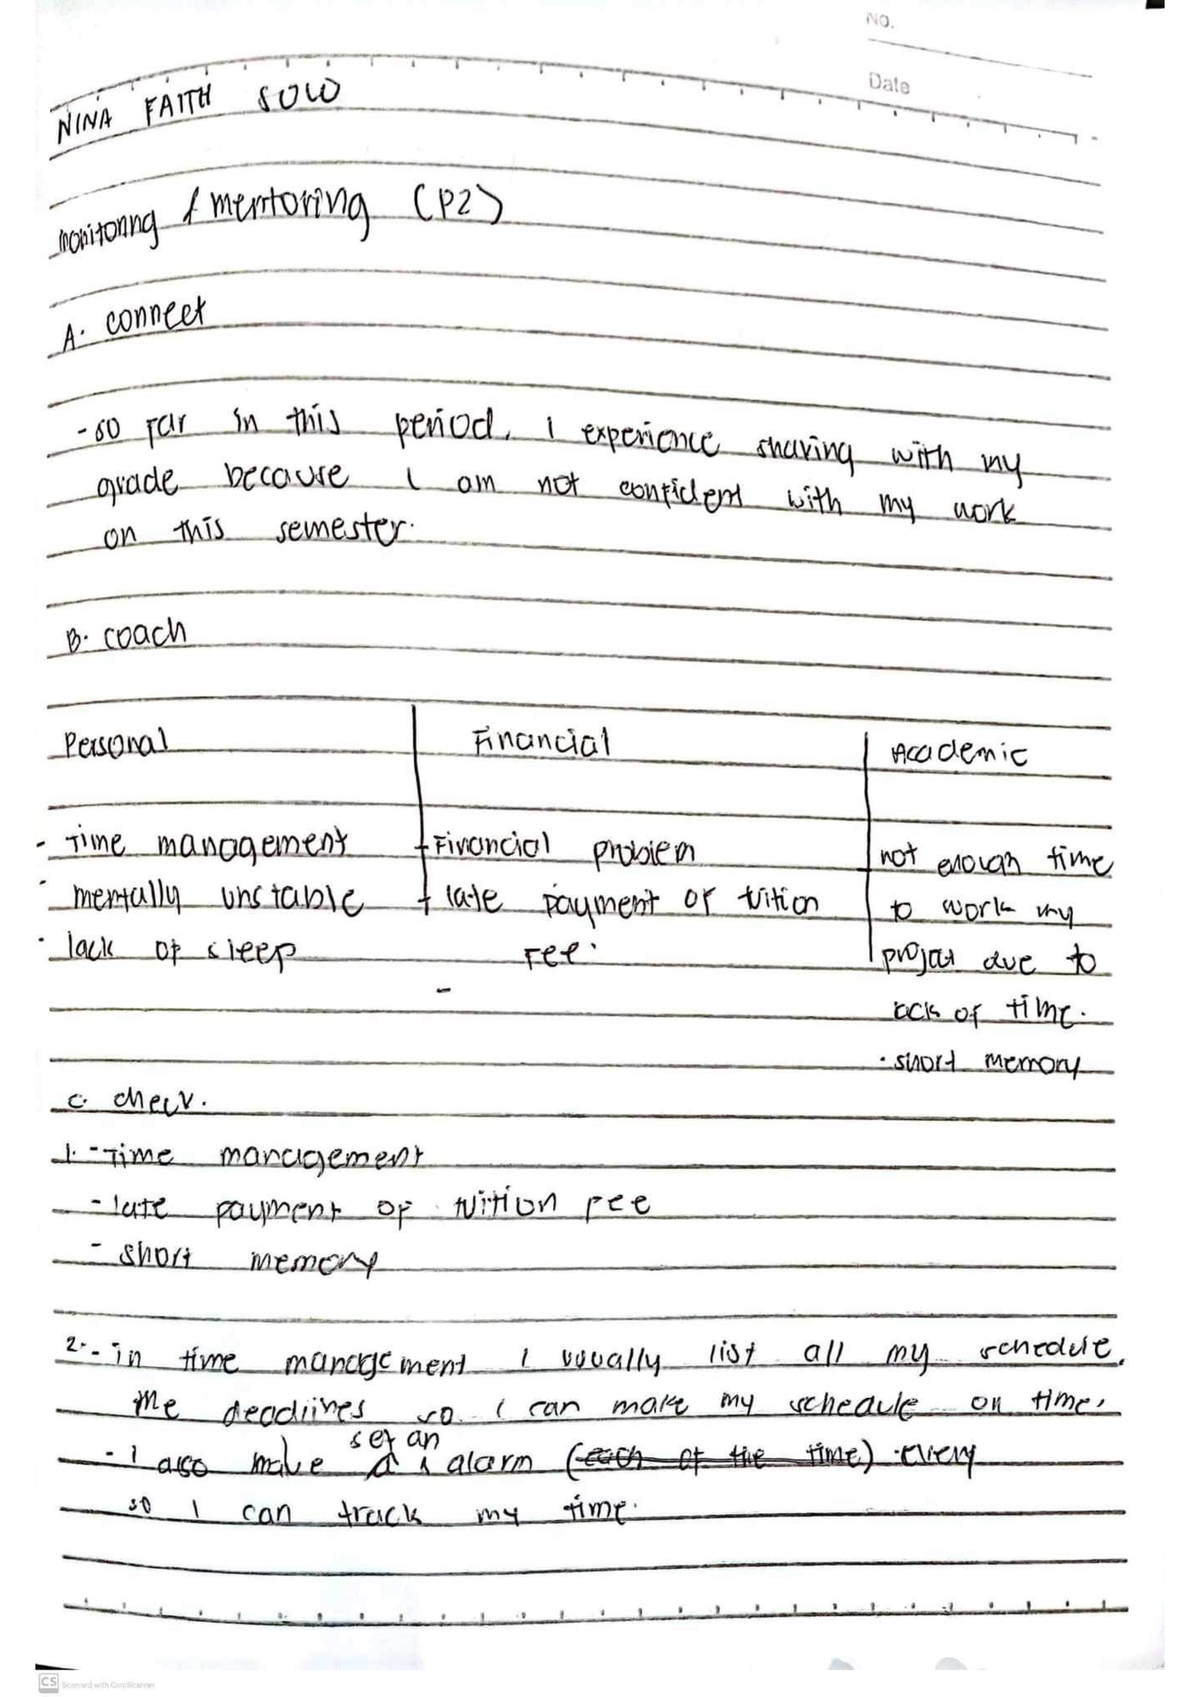 No.
Date
NINA FAITH SOLO
monitoring & mentoring (P2)
A. connect
- so far in this period, I experience sharing with my
grade because I am not confident with my work
on this semester.
B. coach
Personal Financial Academic
- Time management - Financial problem not enough time
- mentally unstable - late payment of tuition to work my
- lack of sleep Fee. project due to
-
lack of time.
- short memory
C. check.
1. - Time management
- late payment of tuition fee
- short memory
2. - in time management I usually list all my schedule,
the deadlines so I can make my schedule on time.
set an
- I also make a alarm (each of the time) every
so I can track my time.
CS Scanned with CamScanner